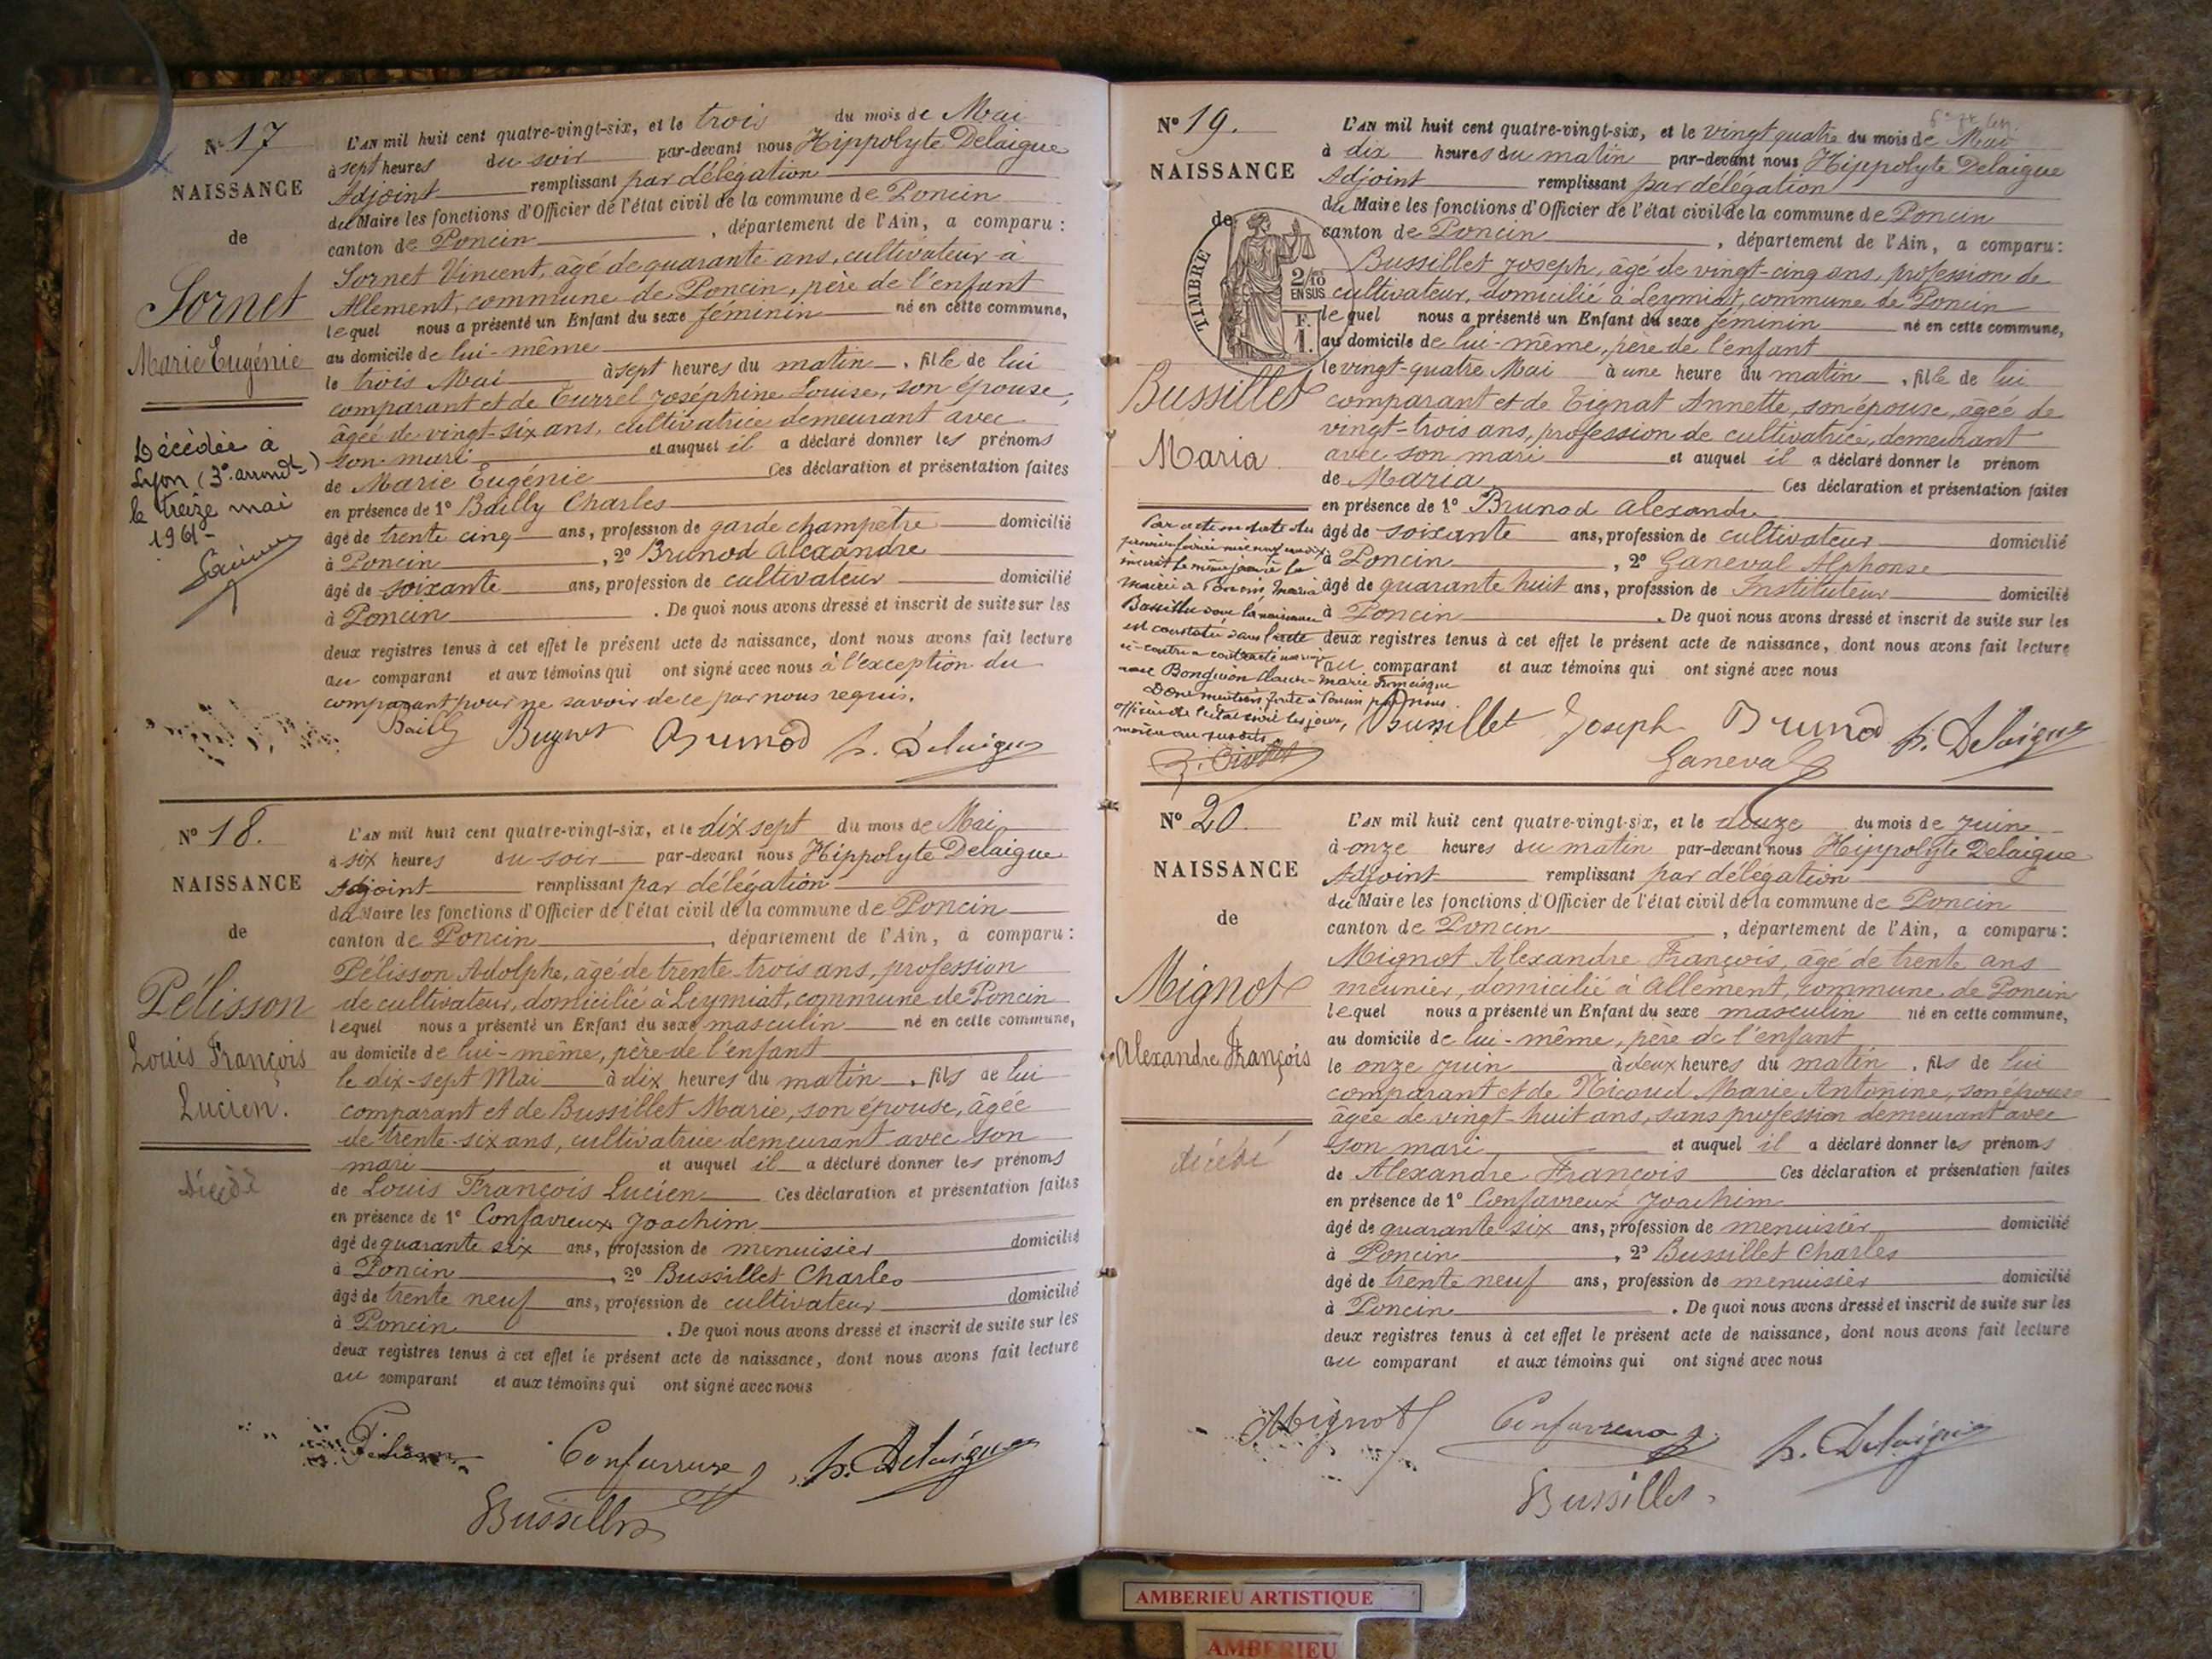 N° 17
NAISSANCE
de
Sornet
Marie Eugénie
Décédée à
Lyon (3e arrondt)
le treize mai
1961
L'AN mil huit cent quatre-vingt-six, et le trois du mois de Mai
à sept heures du soir par-devant nous Hippolyte Delaigue
Adjoint remplissant par délégation
du Maire les fonctions d'Officier de l'état civil de la commune de Poncin
canton de Poncin, département de l'Ain, a comparu :
Sornet Vincent, âgé de quarante ans, cultivateur à
Allement, commune de Poncin, père de l'enfant
lequel nous a présenté un Enfant du sexe féminin né en cette commune,
au domicile de lui-même
le trois Mai à sept heures du matin, fille de lui
comparant et de Turrel Joséphine Louise, son épouse,
âgée de vingt-six ans, cultivatrice demeurant avec
son mari et auquel il a déclaré donner les prénoms
de Marie Eugénie Ces déclaration et présentation faites
en présence de 1° Bailly Charles
âgé de trente cinq ans, profession de garde champetre domicilié
à Poncin, 2° Brunod Alexandre
âgé de soixante ans, profession de cultivateur domicilié
à Poncin. De quoi nous avons dressé et inscrit de suite sur les
deux registres tenus à cet effet le présent acte de naissance, dont nous avons fait lecture
au comparant et aux témoins qui ont signé avec nous à l'exception du
comparant pour ne savoir de ce par nous requis.
Bailly Brunod h. Delaigue
N° 18.
NAISSANCE
de
Pélisson
Louis François
Lucien.
décédé
L'AN mil huit cent quatre-vingt-six, et le dix sept du mois de Mai
à six heures du soir par-devant nous Hippolyte Delaigue
Adjoint remplissant par délégation
du Maire les fonctions d'Officier de l'état civil de la commune de Poncin
canton de Poncin, département de l'Ain, a comparu :
Pélisson Adolphe, âgé de trente-trois ans, profession
de cultivateur, domicilié à Leymiat, commune de Poncin
lequel nous a présenté un Enfant du sexe masculin né en cette commune,
au domicile de lui-même, père de l'enfant
le dix-sept Mai à dix heures du matin, fils de lui
comparant et de Bussillet Marie, son épouse, âgée
de trente-six ans, cultivatrice demeurant avec son
mari et auquel il a déclaré donner les prénoms
de Louis François Lucien Ces déclaration et présentation faites
en présence de 1° Confavreux Joachim
âgé de quarante six ans, profession de menuisier domicilié
à Poncin, 2° Bussillet Charles
âgé de trente neuf ans, profession de cultivateur domicilié
à Poncin. De quoi nous avons dressé et inscrit de suite sur les
deux registres tenus à cet effet le présent acte de naissance, dont nous avons fait lecture
au comparant et aux témoins qui ont signé avec nous
Pélisson Confavreux h. Delaigue
Bussillet
N° 19.
NAISSANCE
de
TIMBRE
2/10
EN SUS
F.
1.
Bussillet
Maria
Par acte en date du
inscrit le même jour à la
mairie de Poncin Maria
Bussillet dont la naissance
est constatée dans l'acte
ci-contre a contracté mariage
avec Claude-Marie Francisque
Dont mention faite à Poncin par nous
officier de l'état civil les jour,
mois et an susdits
L'AN mil huit cent quatre-vingt-six, et le vingt quatre du mois de Mai
à dix heures du matin par-devant nous Hippolyte Delaigue
Adjoint remplissant par délégation
du Maire les fonctions d'Officier de l'état civil de la commune de Poncin
canton de Poncin, département de l'Ain, a comparu :
Bussillet Joseph, âgé de vingt-cinq ans, profession de
cultivateur, domicilié à Leymiat, commune de Poncin
lequel nous a présenté un Enfant du sexe féminin né en cette commune,
au domicile de lui-même, père de l'enfant
le vingt-quatre Mai à une heure du matin, fille de lui
comparant et de Tignat Annette, son épouse, âgée de
vingt-trois ans, profession de cultivatrice, demeurant
avec son mari et auquel il a déclaré donner le prénom
de Maria. Ces déclaration et présentation faites
en présence de 1° Brunod Alexandre
âgé de soixante ans, profession de cultivateur domicilié
à Poncin, 2° Ganeval Alphonse
âgé de quarante huit ans, profession de Instituteur domicilié
à Poncin. De quoi nous avons dressé et inscrit de suite sur les
deux registres tenus à cet effet le présent acte de naissance, dont nous avons fait lecture
au comparant et aux témoins qui ont signé avec nous
Bussillet Joseph Brunod h. Delaigue
Ganeval
N° 20
NAISSANCE
de
Mignot
Alexandre François
décédé
L'AN mil huit cent quatre-vingt-six, et le douze du mois de Juin
à onze heures du matin par-devant nous Hippolyte Delaigue
Adjoint remplissant par délégation
du Maire les fonctions d'Officier de l'état civil de la commune de Poncin
canton de Poncin, département de l'Ain, a comparu :
Mignot Alexandre François, âgé de trente ans
meunier, domicilié à Allement, commune de Poncin
lequel nous a présenté un Enfant du sexe masculin né en cette commune,
au domicile de lui-même, père de l'enfant
le onze Juin à deux heures du matin, fils de lui
comparant et de Nicoud Marie Antonine, son épouse
âgée de vingt-huit ans, sans profession demeurant avec
son mari et auquel il a déclaré donner les prénoms
de Alexandre François Ces déclaration et présentation faites
en présence de 1° Confavreux Joachim
âgé de quarante six ans, profession de menuisier domicilié
à Poncin, 2° Bussillet Charles
âgé de trente neuf ans, profession de menuisier domicilié
à Poncin. De quoi nous avons dressé et inscrit de suite sur les
deux registres tenus à cet effet le présent acte de naissance, dont nous avons fait lecture
au comparant et aux témoins qui ont signé avec nous
Mignot Confavreux h. Delaigue
Bussillet
AMBERIEU ARTISTIQUE
AMBERIEU